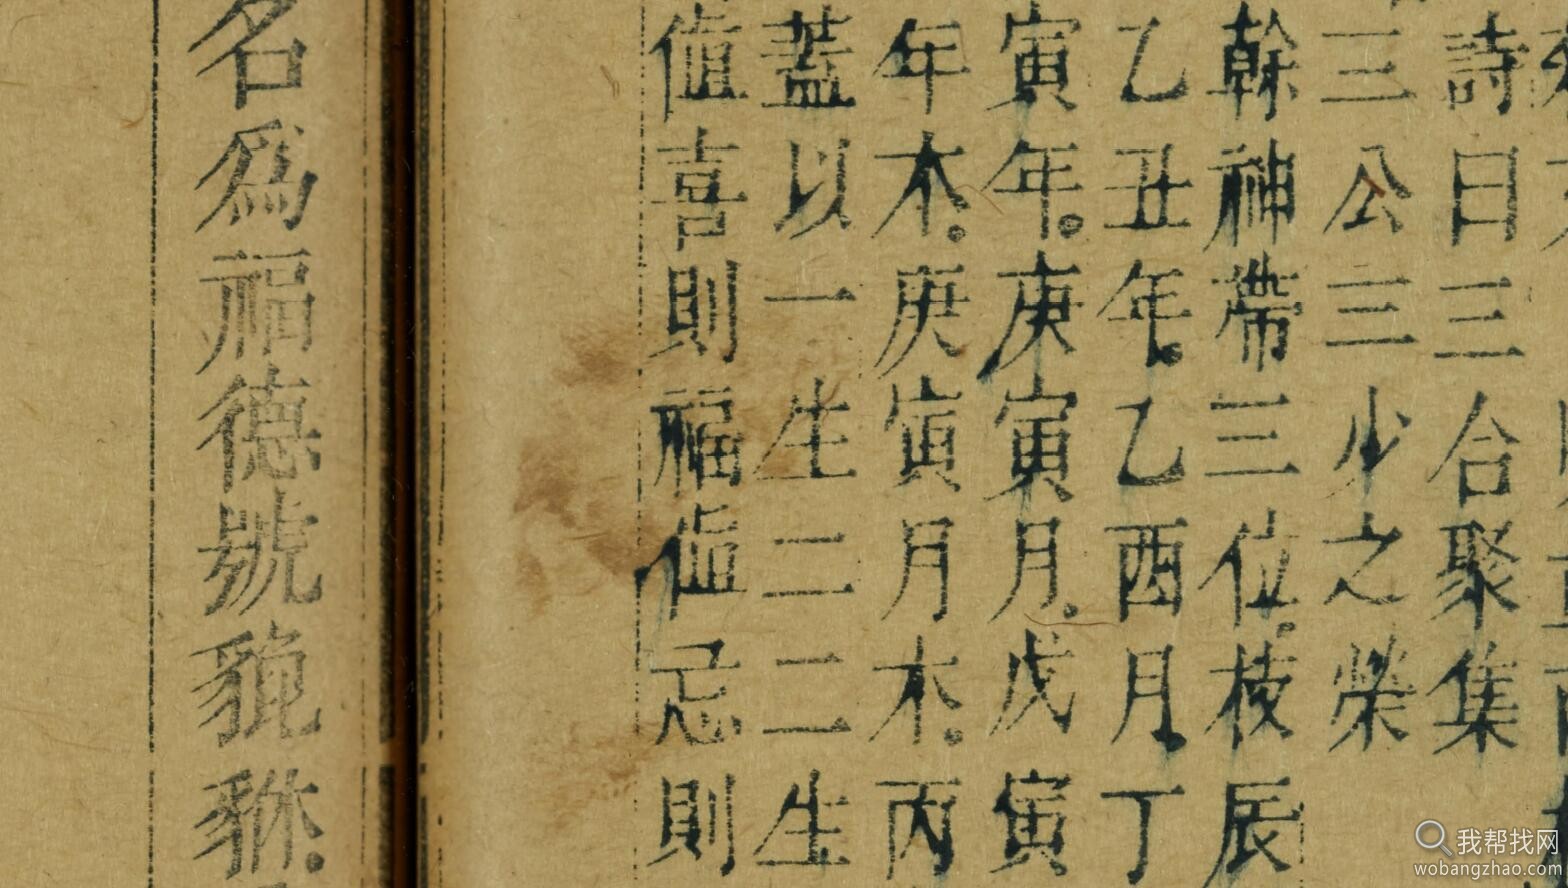 詩曰三合聚集
三公三少之榮
幹神帶三位。枝辰
乙丑年。乙酉月。丁
寅年。庚寅月。戊寅
年木。庚寅月木。丙
蓋以一生二二生
值喜則福值忌則
名爲福德號貔貅。
我帮找网
wobangzhao.com